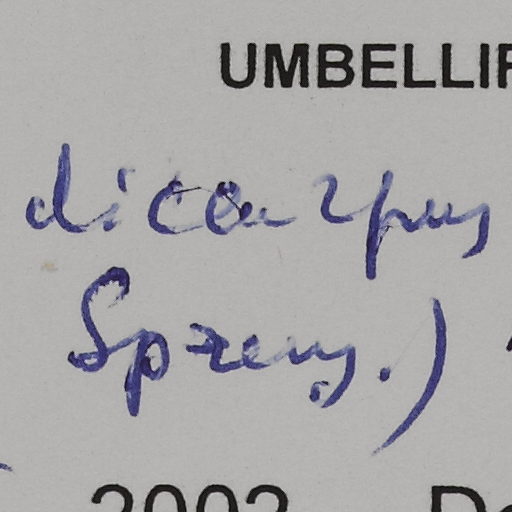 UMBELLIF
dicarpus
Spreng.)
2002 De